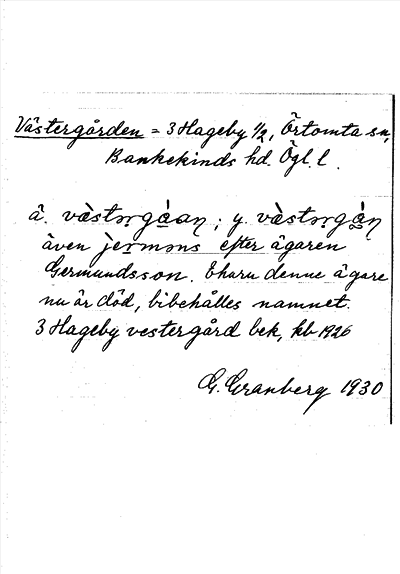 Västergården = 3 Hageby 1/2, Örtomta sn,
Bankekinds hd. Ögl. l.
ä. västorgáan; y. västorgån
även jermons efter ägaren
Germundsson. Ehuru denne ägare
nu är död, bibehålles namnet.
3 Hageby vestergård bek, kb 1926
G. Granberg 1930